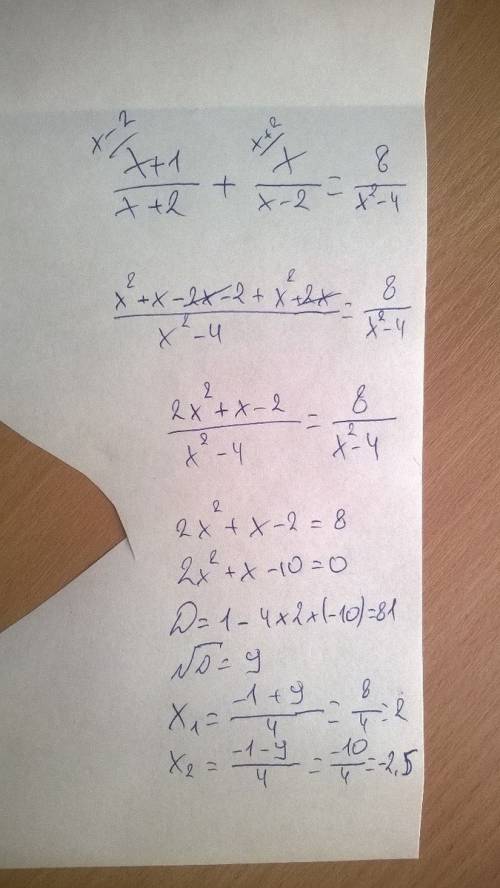 x-2/ x+2/
x+1/x+2 + x/x-2 = 8/x²-4
x²+x-2x-2+x²+2x/x²-4 = 8/x²-4
2x²+x-2/x²-4 = 8/x²-4
2x²+x-2=8
2x²+x-10=0
D=1-4×2×(-10)=81
√D=9
x₁=-1+9/4=8/4=2
x₂=-1-9/4=-10/4=-2,5